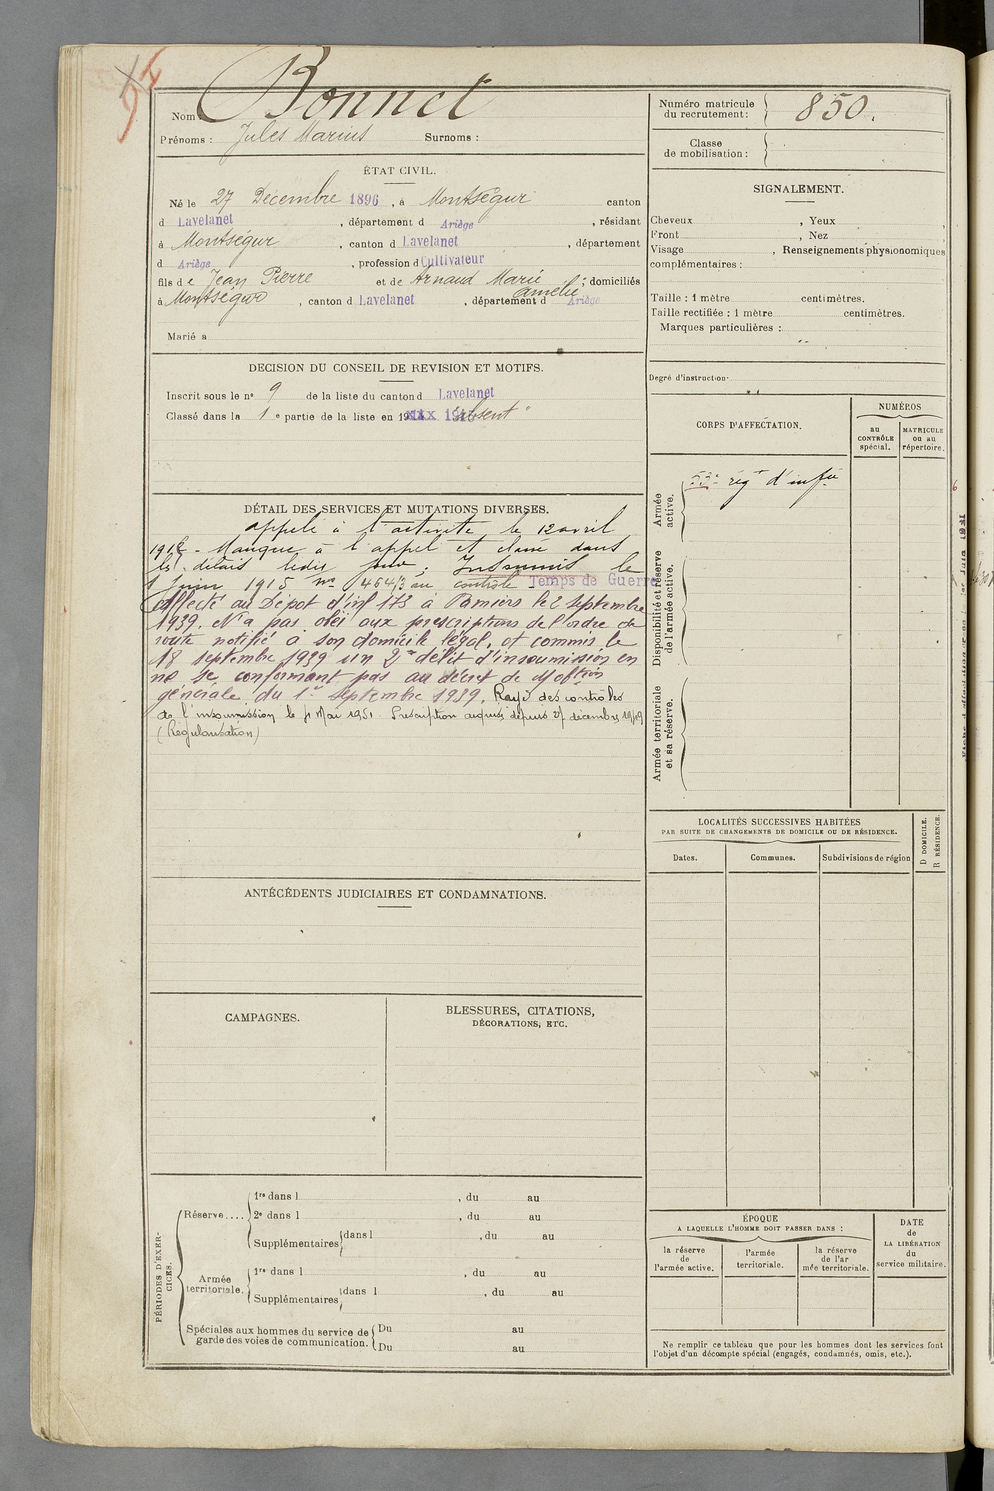 Nom Bonnet
Prénoms : Jules Marius Surnoms :
ÉTAT CIVIL.
Né le 27 Décembre 1896 , à Montségur canton
d Lavelanet , département d Ariège , résidant
à Montségur , canton d Lavelanet , département
d Ariège , profession d Cultivateur
fils de Jean Pierre et de Arnaud Marie Amélie ; domiciliés
à Montségur , canton d Lavelanet , département d Ariège
Marié a
DECISION DU CONSEIL DE REVISION ET MOTIFS.
Inscrit sous le nº 9 de la liste du canton d Lavelanet
Classé dans la 1e partie de la liste en 19 "absent"
DÉTAIL DES SERVICES ET MUTATIONS DIVERSES.
appelé à l'activité le 12 avril
Manque à l'appel et dans
les délais Insoumis le
1 Juin contrôle Temps de Guerre
Affecté au Dépot d'inf 173 à Pamiers le 2 septembre
1939. N'a pas obéi aux prescriptions de l'ordre de
route notifié à son domicile légal, et commis le
18 septembre 1939 un 2e délit d'insoumission en
ne se conformant pas au décret de Mobtion
générale du 1er septembre 1939. Rayé des contrôles
de l'insoumission le Mai 1951. Prescription acquise depuis 27 décembre 1949
(Régularisation)
ANTÉCÉDENTS JUDICIAIRES ET CONDAMNATIONS.
CAMPAGNES.
BLESSURES, CITATIONS,
DÉCORATIONS, ETC.
PÉRIODES D'EXERCICES.
Réserve....
1re dans l , du au
2e dans l , du au
Supplémentaires dans l , du au
Armée
territoriale.
1re dans l , du au
Supplémentaires dans l , du au
Spéciales aux hommes du service de
garde des voies de communication.
Du au
Du au
Numéro matricule
du recrutement : 850.
Classe
de mobilisation :
SIGNALEMENT.
Cheveux , Yeux ,
Front , Nez
Visage , Renseignements physionomiques
complémentaires :
Taille : 1 mètre centimètres.
Taille rectifiée : 1 mètre centimètres.
Marques particulières :
Degré d'instruction
CORPS D'AFFECTATION.
NUMÉROS
au
CONTRÔLE
spécial.
MATRICULE
ou au
répertoire.
Armée
active.
53e régt d'infie
Disponibilité et réserve
de l'armée active.
Armée territoriale
et sa réserve.
LOCALITÉS SUCCESSIVES HABITÉES
PAR SUITE DE CHANGEMENTS DE DOMICILE OU DE RÉSIDENCE.
Dates.
Communes.
Subdivisions de région
D DOMICILE.
R RÉSIDENCE.
ÉPOQUE
A LAQUELLE L'HOMME DOIT PASSER DANS :
la réserve
de
l'armée active.
l'armée
territoriale.
la réserve
de l'ar
mée territoriale.
DATE
de
LA LIBÉRATION
du
service militaire.
Ne remplir ce tableau que pour les hommes dont les services font
l'objet d'un décompte spécial (engagés, condamnés, omis, etc.).